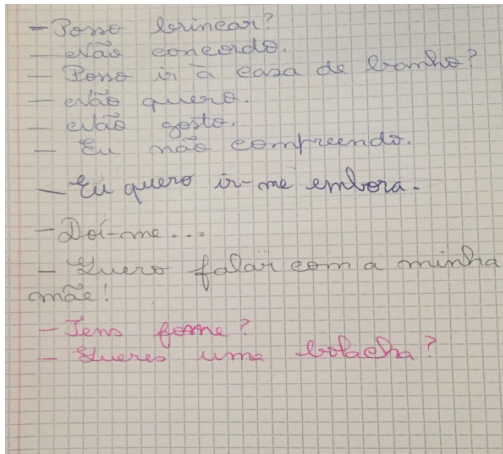 - Posso brincar?
- Não concordo.
- Posso ir à casa de banho?
- Não quero.
- Não gosto.
- Eu não compreendo.
- Eu quero ir-me embora.
- Doí-me...
- Quero falar com a minha
mãe!
- Tens fome?
- Queres uma bolacha?